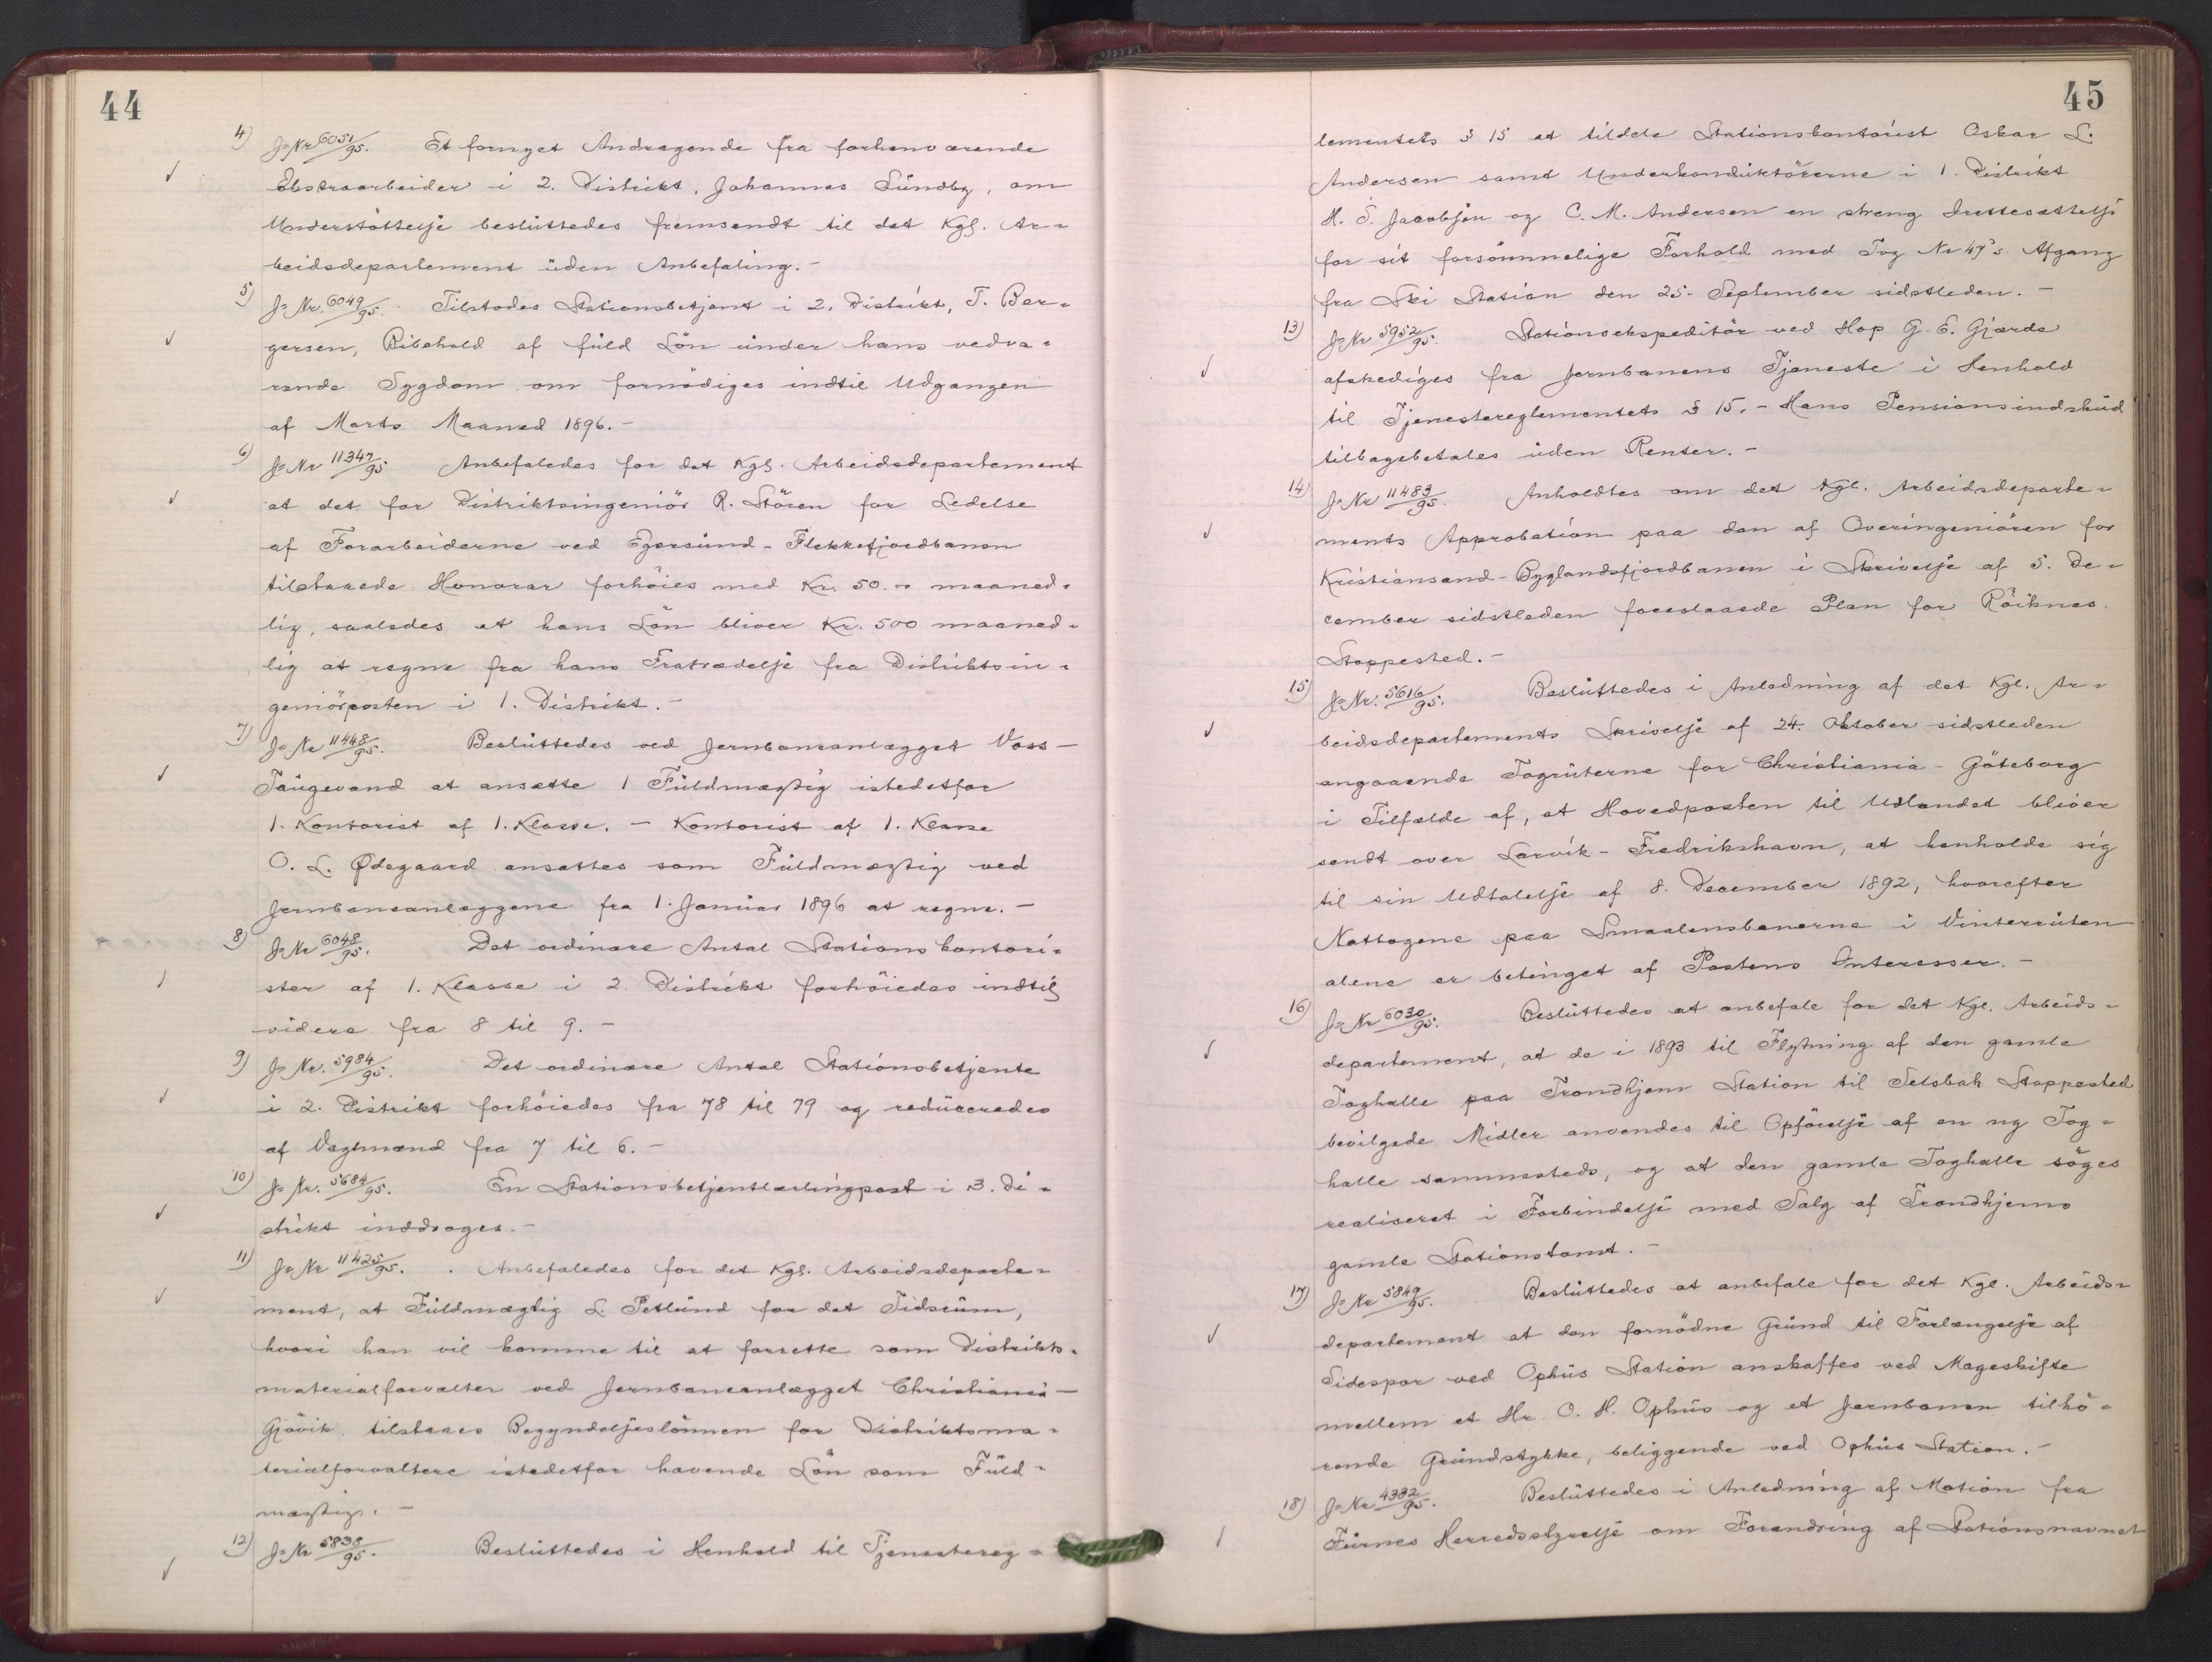 44
4) J=Nr 6051/95. Et fornyet Andragende fra forhenværende
Ekstraarbeider i 2. Distrikt, Johannes Sundby, om
Understöttelse besluttedes fremsendt til det Kgl. Ar=
beidsdepartement uden Anbefaling. -
5) J=Nr. 6049/95. Tilstodes Stationsbetjent i 2. Distrikt, T. Ber=
gersen, Bibehold af fuld Lön under hans vedva=
rende Sygdom om fornödiges indtil Udgangen
af Marts Maaned 1896. -
6) J=Nr 11347/95 Anbefaledes for det Kgl. Arbeidsdepartement
at det for Distriktsingeniör R. Stören for Ledelse
af Forarbeiderne ved Egersund - Flekkefjordbanen
tilstaaede Honorar forhöies med Kr. 50.00 maaned=
lig, saaledes at hans Lön bliver Kr. 500 maaned=
lig at regne fra hans Fratrædelse fra Distriktsin=
geniörposten i 1. Distrikt. -
7) J=Nr 11448/95. Besluttedes ved Jernbaneanlægget Voss -
Taugevand at ansætte 1 Fuldmægtig istedetfor
1. Kontorist af 1. Klasse. - Kontorist af 1. Klasse
O. L. Ødegaard ansattes som Fuldmægtig ved
Jernbaneanlæggene fra 1. Januar 1896 at regne. -
8) J=Nr 6048/95. Det ordinære Antal Stationskontori=
ster af 1. Klasse i 2. Distrikt forhöiedes indtil
videre fra 8 til 9. -
9) J=Nr. 5984/95. Det ordinære Antal Stationsbetjente
i 2. Distrikt forhöiedes fra 78 til 79 og reduceredes
af Vagtmænd fra 7 til 6. -
10) J=Nr. 5684/95. En Stationsbetjentlærlingpost i 3. Di=
strikt inddrages. -
11) J=Nr 11425/95. Anbefaledes for det Kgl. Arbeidsdeparte=
ment, at Fuldmægtig L. Petlund for det Tidsrum,
hvori han vil komme til at forrette som Distrikts=
materialforvalter ved Jernbaneanlægget Christiania -
Gjövik tilstaaes Begyndelseslönnen for Distriktsma=
terialforvaltere istedetfor havende Lön som Fuld=
mægtig. -
12) J=Nr 5838/95. Besluttedes i Henhold til Tjenestereg=
45
lementets § 15 at tildele Stationskontorist Oskar L.
Andersen samt Underkonduktörerne i 1. Distrikt
H. S. Jacobsen og C. M. Andersen en streng Irettesættelse
for sit forsömmelige Forhold med Tog Nr 47's Afgang
fra Ski Station den 25. September sidstleden. -
13) J=Nr 5952/95. Stationsekspeditör ved Hop G. E. Gjærde
afskediges fra Jernbanens Tjeneste i Henhold
til Tjenestereglementets § 15. - Hans Pensionsindskud
tilbagebetales uden Renter. -
14) J=Nr 11483/95. Anholdtes om det Kgl. Arbeidsdeparte=
ments Approbation paa den af Overingeniören for
Kristiansand - Byglandsfjordbanen i Skrivelse af 5. De=
cember sidstleden foreslaaede Plan for Röiknes
Stoppested. -
15) J=Nr. 5616/95. Besluttedes i Anledning af det Kgl. Ar=
beidsdepartements Skrivelse af 24. Oktober sidstleden
angaaende Togruterne for Christiania - Göteborg
i Tilfælde af, at Hovedposten til Udlandet bliver
sendt over Larvik - Fredrikshavn, at henholde sig
til sin Udtalelse af 8. December 1892, hvorefter
Nattogene paa Smaalensbanerne i Vinterruten
alene er betinget af Postens Interesser. -
16) J=Nr 6030/95. Besluttedes at anbefale for det Kgl. Arbeids=
departement, at de i 1893 til Flytning af den gamle
Toghalle paa Trondhjem Station til Selsbak Stoppested
bevilgede Midler anvendes til Opförelse af en ny Tog=
halle sammesteds, og at den gamle Toghalle söges
realiseret i Forbindelse med Salg af Trondhjems
gamle Stationstomt. -
17) J=Nr 5849/95. Besluttedes at anbefale for det Kgl. Arbeids=
departement at den fornödne Grund til Forlængelse af
Sidespor ved Ophus Station anskaffes ved Mageskifte
mellem et Hr. O. H. Ophus og et Jernbanen tilhö=
rende Grundstykke, beliggende ved Ophus Station. -
18) J=Nr 4332/95. Besluttedes i Anledning af Motion fra
Furnes Herredsstyrelse om Forandring af Stationsnavnet